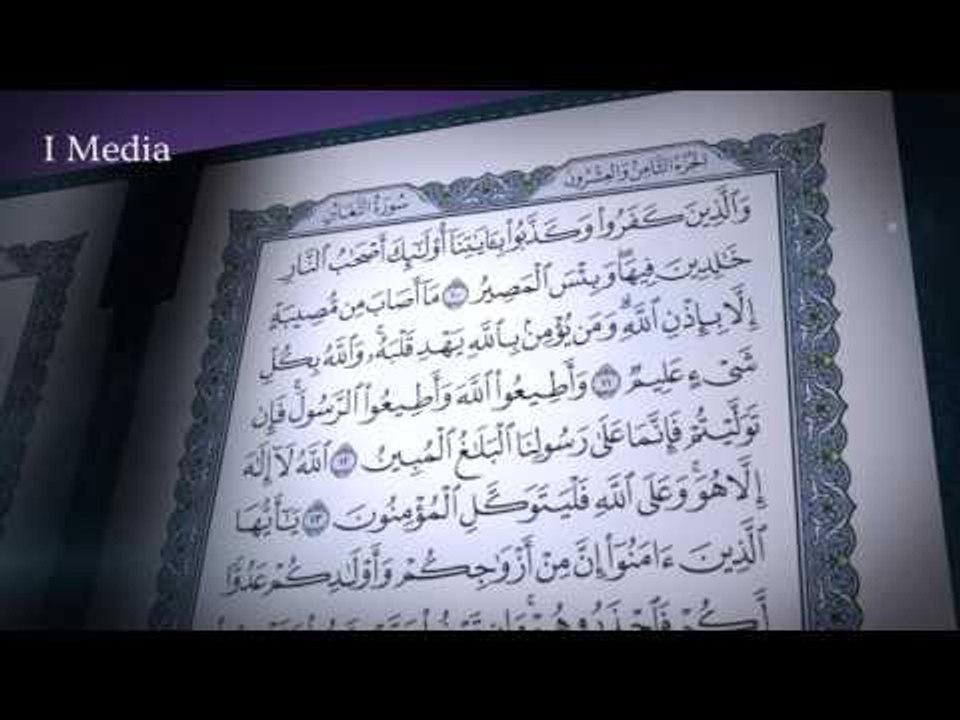 I Media
الجزء الثامن والعشرون
سورة التغابن
وَٱلَّذِينَ كَفَرُوا۟ وَكَذَّبُوا۟ بِـَٔايَـٰتِنَآ أُو۟لَـٰٓئِكَ أَصْحَـٰبُ ٱلنَّارِ
خَـٰلِدِينَ فِيهَا ۖ وَبِئْسَ ٱلْمَصِيرُ ١٠ مَآ أَصَابَ مِن مُّصِيبَةٍ
إِلَّا بِإِذْنِ ٱللَّهِ ۗ وَمَن يُؤْمِنۢ بِٱللَّهِ يَهْدِ قَلْبَهُۥ ۚ وَٱللَّهُ بِكُلِّ
شَىْءٍ عَلِيمٌ ١١ وَأَطِيعُوا۟ ٱللَّهَ وَأَطِيعُوا۟ ٱلرَّسُولَ ۚ فَإِن
تَوَلَّيْتُمْ فَإِنَّمَا عَلَىٰ رَسُولِنَا ٱلْبَلَـٰغُ ٱلْمُبِينُ ١٢ ٱللَّهُ لَآ إِلَـٰهَ
إِلَّا هُوَ ۚ وَعَلَى ٱللَّهِ فَلْيَتَوَكَّلِ ٱلْمُؤْمِنُونَ ١٣ يَـٰٓأَيُّهَا
ٱلَّذِينَ ءَامَنُوٓا۟ إِنَّ مِنْ أَزْوَٰجِكُمْ وَأَوْلَـٰدِكُمْ عَدُوًّا
لَّكُمْ فَٱحْذَرُوهُمْ ۚ وَإِن